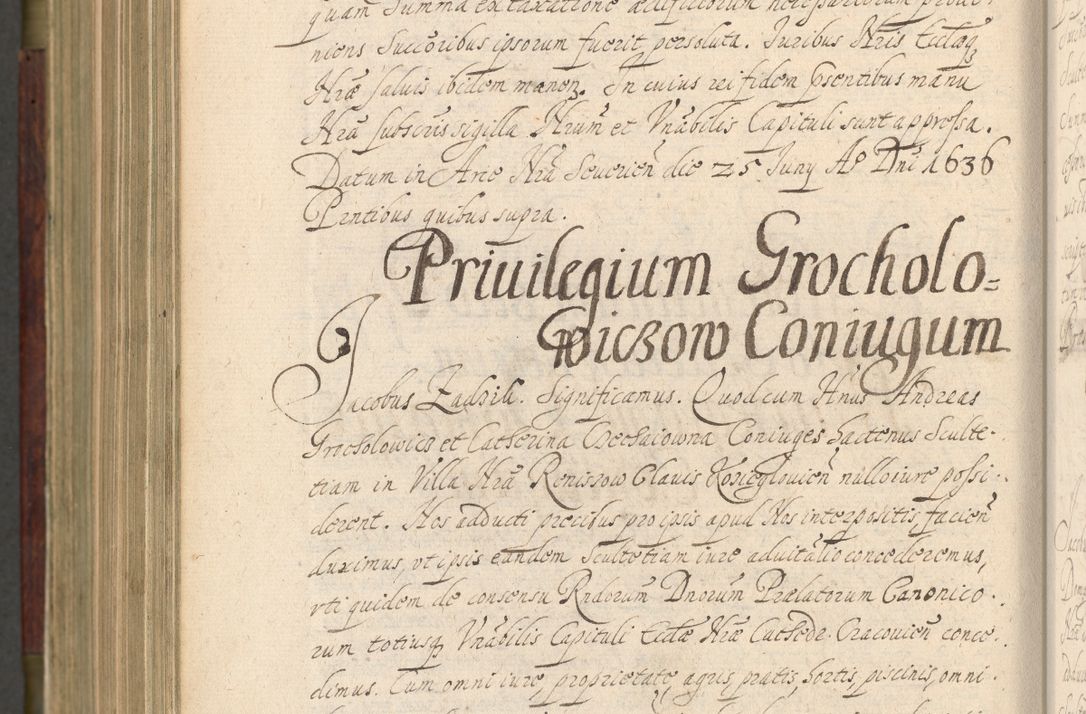 quam Summa ex taxatione ædificiorum
niens Succoribus ipsorum fuerit persoluta. Iuribus Nris Ecclæq
Nræ saluis ibidem manen. In cuius rei fidem psentibus manu
Nrã subscris sigilla Nrum et Vnabilis Capituli sunt appressa.
Datum in Arce Nrã Seuerien̄ die 25 Iuny Aº Dni 1636
Pzntibus quibus supra.
Priuilegium Grocholo=
wiczow Coniugum
Iacobus Zadzik. Significamus. Quod cum Hnus Andreas
Grocholowicz et Catherina Chechaiowna Coniuges hactenus Sculte-
tiam in Villa Nrã Reniszow Clauis Kozieglouien̄ nullo iure possi-
derent. Nos adducti precibus pro ipsis apud Nos interpositis, facien̄
duximus, vt ipsis eandem Scultetiam iure aduitalio concederemus,
vti quidem de consensu Rndorum Dnorum Prælatorum Canonico-
rum totiusq Vnabilis Capituli Ecclæ Nræ Cathedr. Cracouien̄ conce-
dimus. Cum omni iure, proprietate, agris, pratis, hortis, piscinis, omni-